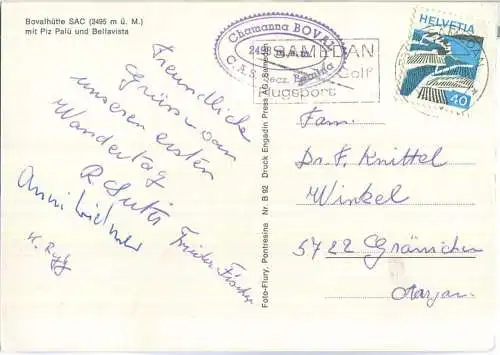 Bovalhütte SAC (2495 m ü. M.)
mit Piz Palü und Bellavista
Freundliche
Grüsse von
unserem ersten
Wandertag
R. Suter
Frieder Fischer
H. Rygg
Chamanna BOVAL
2495 m.ü.m.
C.A.S.
Bernina
SAMEDAN
Golf
lugsport
HELVETIA
40
Foto-Flury, Pontresina Nr. B 92 Druck Engadin Press AG, Samedan
Fam.
Dr. F. Knittel
Winkel
5722 Gränichen
Aargau